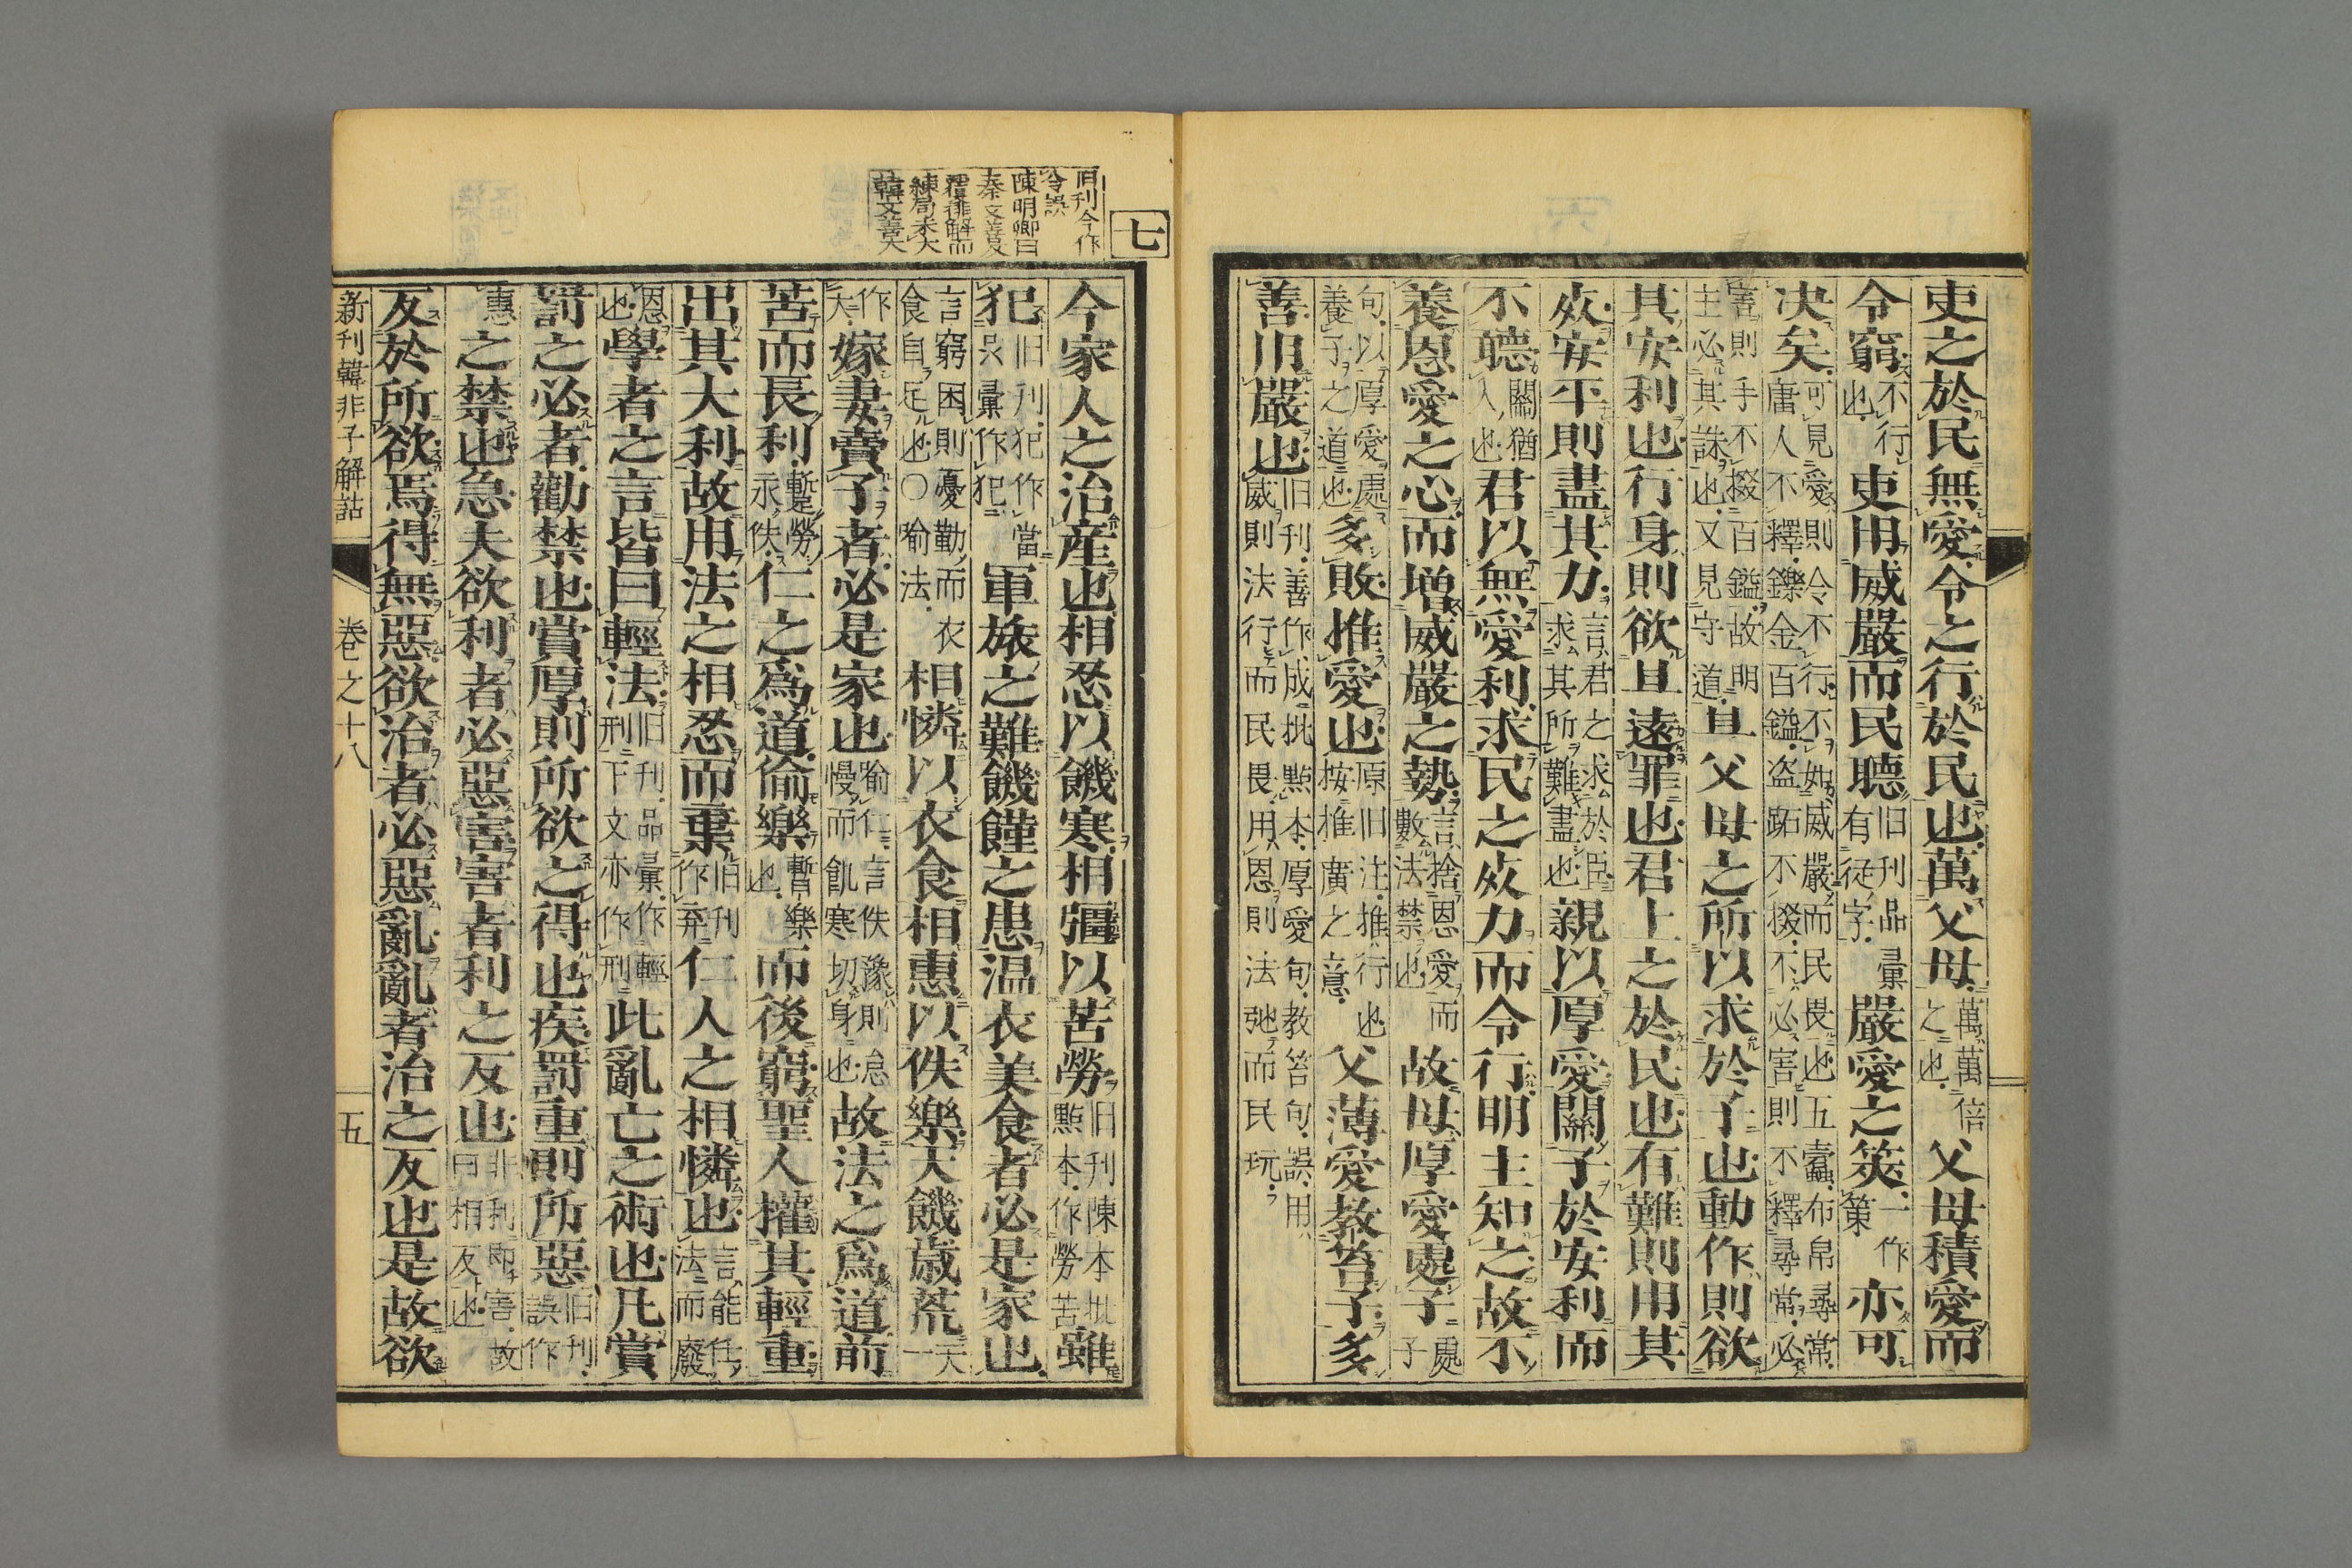 吏之於民無愛令之行於民也萬父母萬萬倍之也父母積愛而
令窮不行也吏用威嚴而民聽旧刊品彙有從字嚴愛之筴一作策亦可
決矣可見愛則令不行不如威嚴而民畏也五蠹布帛尋常庸人不釋鑠金百鎰盗跖不掇不必害則不釋尋常必
害則手不掇百鎰故明主必其誅也又見守道且父母之所以求於子也動作則欲
其安利也行身則欲其遠罪也君上之於民也有難則用其
死安平則盡其力言君之求於臣求其所難盡也親以厚愛關子於安利而
不聽關猶入也君以無愛利求民之死力而令行明主知之故不
養恩愛之心而增威嚴之勢言捨恩愛而數法禁也故母厚愛處子處子
句以厚愛處養子之道也多敗推愛也原旧注推行也按推廣之意父薄愛教笞子多
善用嚴也旧刊善作成批點本厚愛句教笞句誤用威則法行而民畏用恩則法弛而民玩
七
旧刊今作
令誤
陳明卿曰
秦文善反
覆排解而
練局未大
韓文善大
今家人之治產也相忍以饑寒相彊以苦勞旧刊陳本批點本作勞苦雖
犯旧刊犯作當品彙作犯軍旅之難饑饉之患温衣美食者必是家也
言窮困則憂勤而衣食自足也〇喻法相憐以衣食相惠以佚樂天饑歲荒天一
作大嫁妻賣子者必是家也喻仁言佚豫則怠慢而飢寒切身也故法之爲道前
苦而長利蹔勞永佚仁之爲道偷樂暫樂也而後窮聖人權其輕重
出其大利故用法之相忍而棄旧刊作弃仁人之相憐也言能任法而廢
恩也學者之言皆曰輕法旧刊品彙作輕刑下文亦作刑此亂亡之術也凡賞
罰之必者勸禁也賞厚則所欲之得也疾罰重則所惡旧刊誤作
惠之禁也急夫欲利者必惡害害者利之反也非利即害故曰相反也
反於所欲焉得無惡欲治者必惡亂亂者治之反也是故欲
新刊韓非子解詁 卷之十八 五